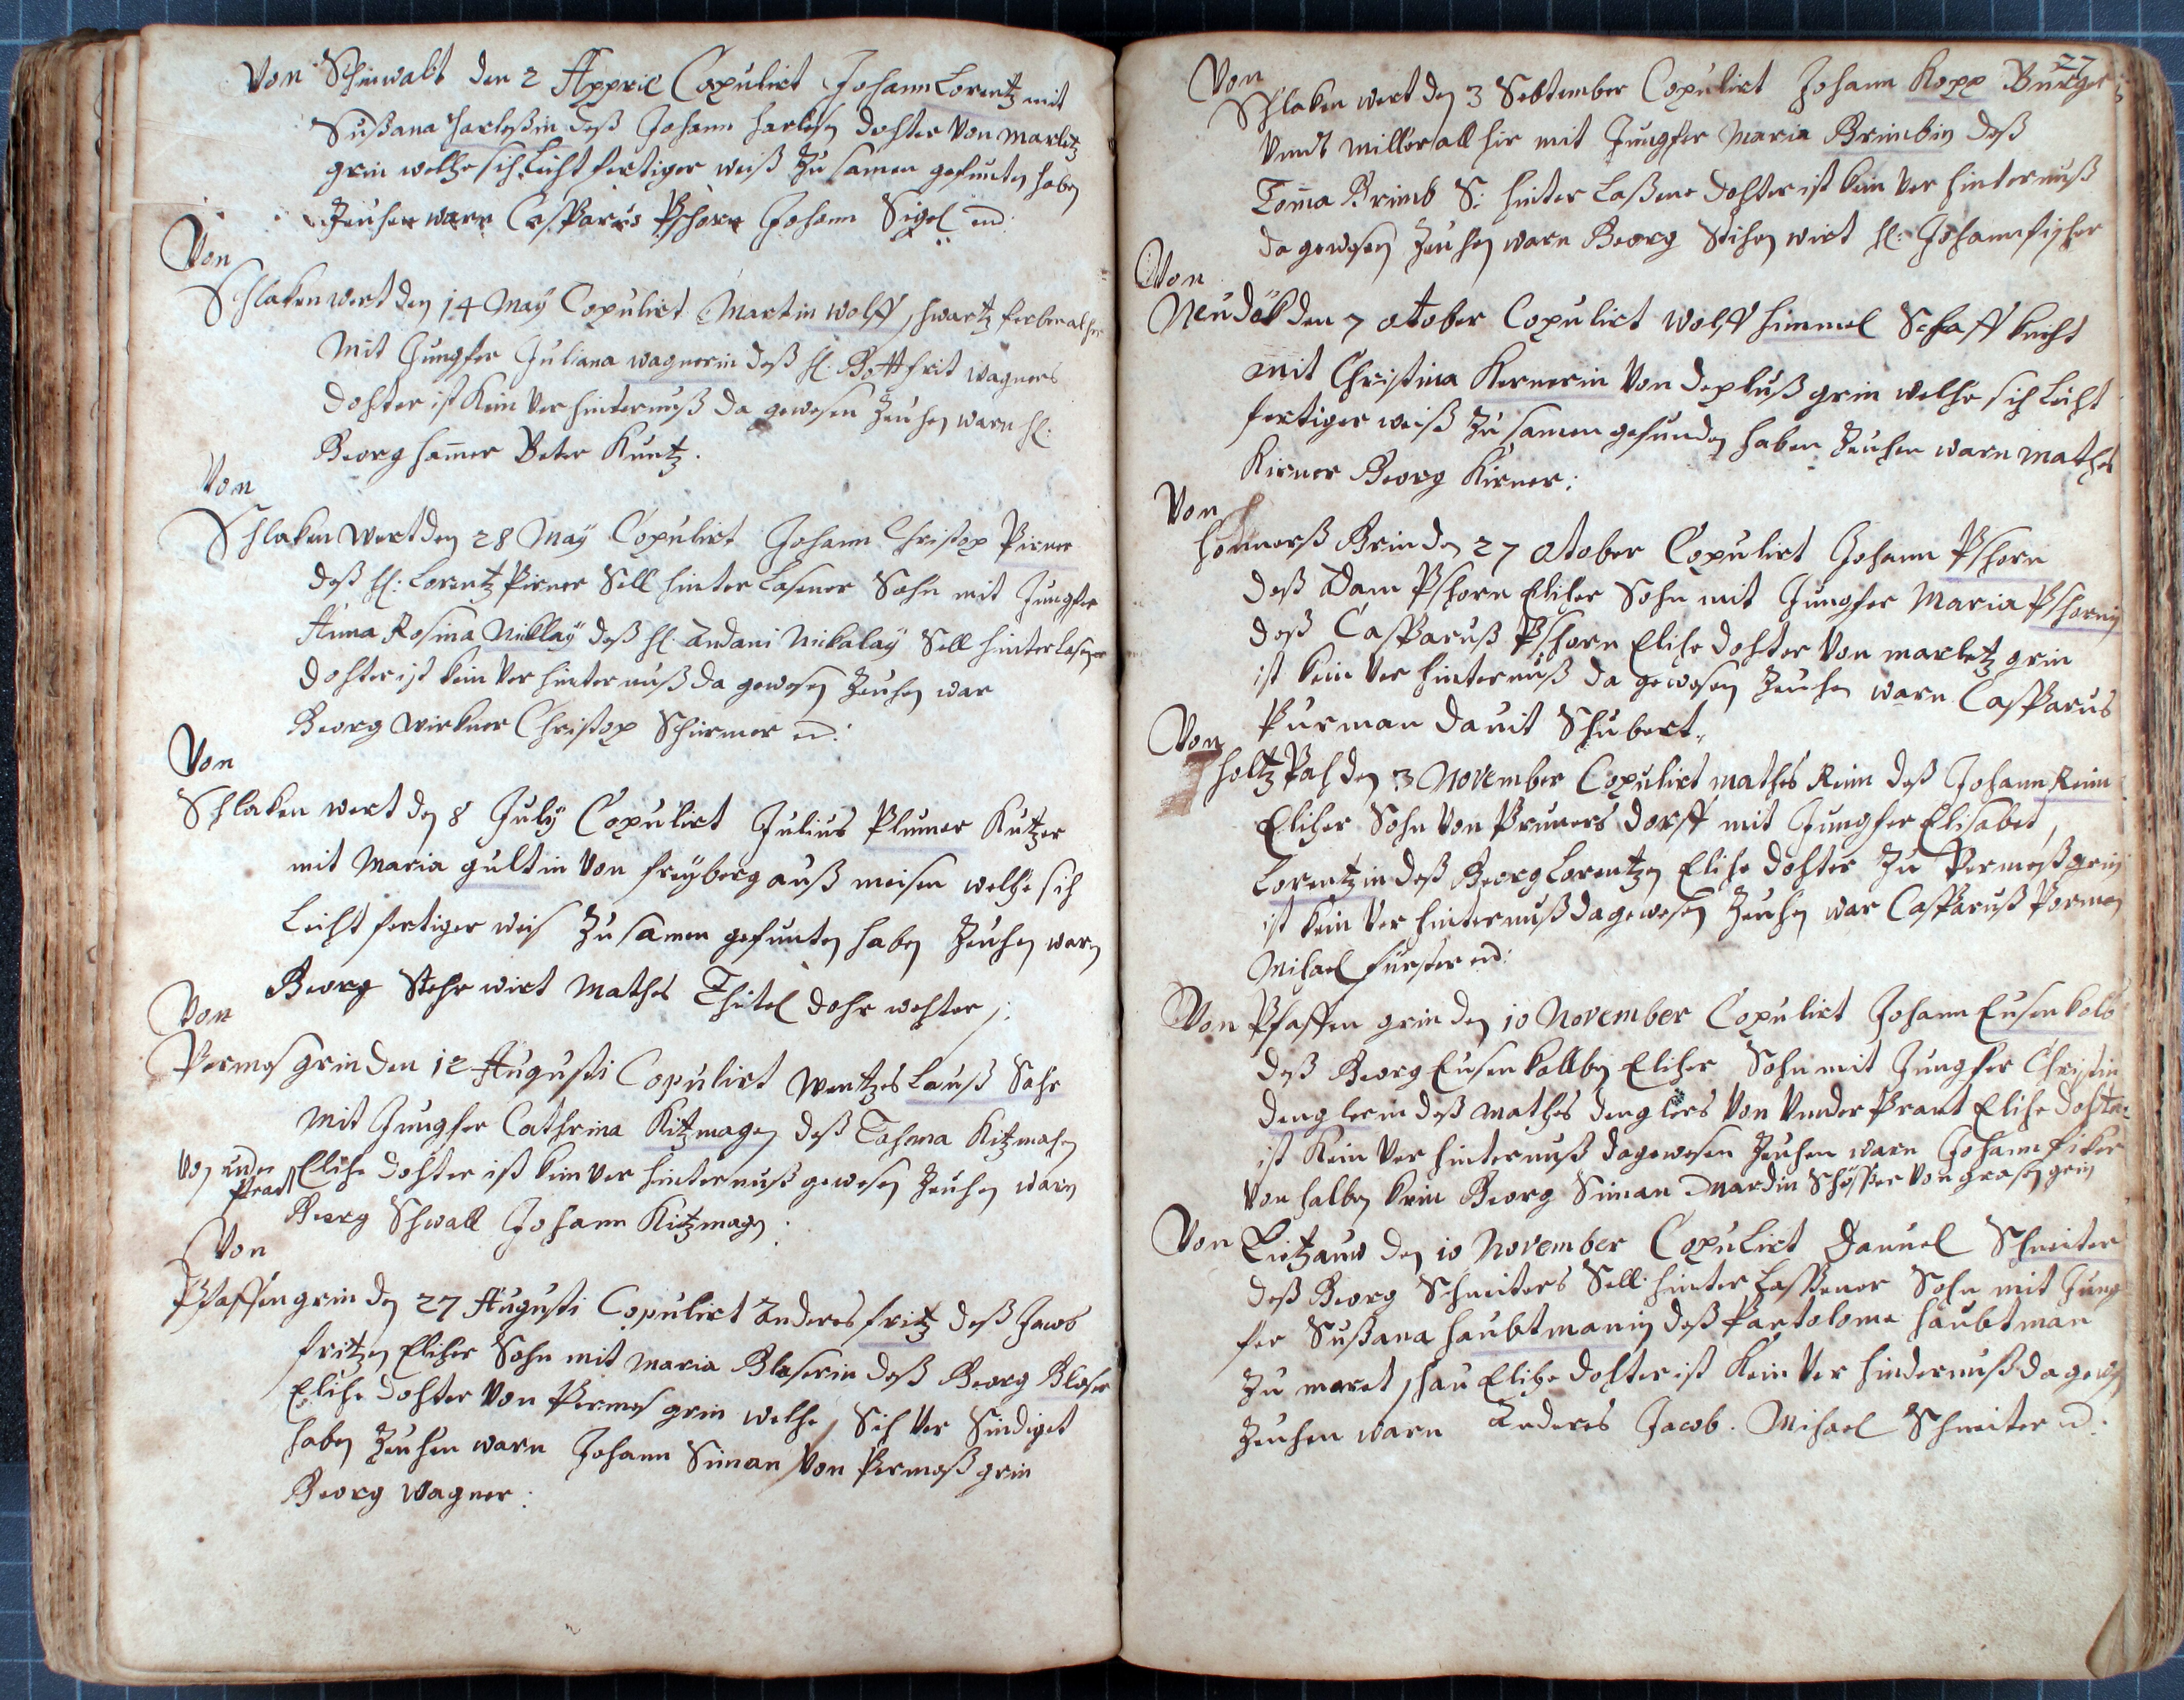 Von Schinwalt den 2 Appric Copulirt Johann Lorentz mit
Sußana Harleßin deß Johann Harleß dohter Von Marletz
grin welhe sich Leicht fertiger weiß Zu samen gefunten haben
Zeuhen warn Casparus Pschorn Johann Sigel
Von
Schlakenwert den 14 May Copulirt Martin Wolff schwartz ferber alhir
Mit Jungfer Juliana Wagnerin deß H: Gottfrit Wagners
dohter ist Kein Ver hinternuß da gewesen Zeuhen warn H:
Georg Hamer Peter Kuntz.
Von
Schlaken wert den 28 May Copulirt Johann Christop Pirner
deß H: Lorentz Pirner Sell hinter Lasener Sohn mit Jungfer
Anna Rosina Niklaÿ deß H: Andani Nikalaÿ Sell hinter Lasener
dohter ist kein Ver hinternuß da gewesen Zeuhen war
Georg Wirkner Christop Schirmer
Von
Schlaken wert den 8 July Copulirt Julius Plumer Kutzer
mit Maria gultin Von freÿberg auß meisen welhe sich
Leicht fertiger weis Zu samen gefunten haben Zeuhen warn
Georg Stehr wirt Mathes Thitel dohr wehter
Von
Permes grin den 12 Augusti Copulirt Wentzes Lauß Sahr
Mit Jungfer Cathrina Kitzmagen deß Tohma Kitzmahn
Von under Prant Elihe dohter ist kein Ver hinternuß gewesen Zeuhen warn
Georg Schwall Johann Kitzmagn
Von
Pfaffen grin den 27 Augusti Copulirt Anderes fritz deß Jacob
fritzen Eliher Sohn mit Maria Blaserin deß Georg Blaser
Elihe dohter Von Permes grin welhe Sich Ver Sindiget
haben Zeuhen warn Johann Siman Von Permeß grin
Georg Wagner:
27
Von
Schlaken wert den 3 Sebtember Copulirt Johann Kopp Burger
Vnndt miller all hir mit Jungfer Maria Brimbin deß
Toma Brimb S: hinter Laßene dohter ist kein Ver hinternuß
da gewesen Zeuhen warn Georg Stihen wirt H: Johann fischer
Von
Neudek den 7 otober Copulirt Wolff Himmel Schaff kneht
mit Christina Kernerin Von deplus grin welhe sich Leicht
fertiger weiß Zu samen gefunden haben Zeuhen warn mathes
Kirner Georg Kirner:
Von
Honnerß Grin den 27 otober Copulirt Johann Pschorn
deß Adam Pschorn Eliher Sohn mit Jungfer Maria Pschornin
deß Casparuß Pschorn Elihe dohter Von marletz grin
ist kein Ver hinternuß da gewesen Zeuhen warn Casparus
Purman Dauit Schubert.
Von
Holtz Pah den 3 November Copulirt mathes Reim deß Johann Reim
Eliher Sohn Von Pruners dorff mit Jungfer Elisabet
Lorentzin deß Georg Lorentzen Elihe dohter Zu Permeß grin
ist kein Ver hinternuß da gewesen Zeuhen war Casparuß Porman
Mihael fürster
Von Pfaffen grin den 10 November Copulirt Johann Eusen kolb
deß Georg Eusen kollben Eliher Sohn mit Jungfer Christin
denglerin deß mathes denglers Von Vnder Prant Elihe dohter
ist Kein Ver hinternuß da gewesen Zeuhen warn Johann fiker
Von halben krin Georg Siman Mardin Schösser Von grasen grin
Von Lietzauw den 10 November Copulirt Danuel Schneiter
deß Georg Schneiters Sell: hinter Lassener Sohn mit Jung
fer Sußana Haubtmanin deß Partolome haubtman
Zu meret schau Elihe dohter ist Kein Ver hindernuß da gewesen
Zeuhen warn Anderes Jacob. Mihael Schneiter